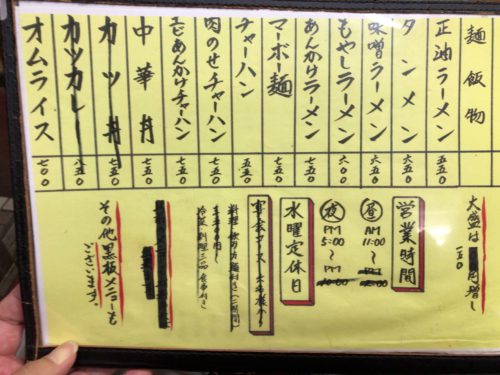 麺飯物
正油ラーメン 五五〇
タンメン 六五〇
味噌ラーメン 六五〇
もやしラーメン 六〇〇
あんかけラーメン 七五〇
マーボ麺 七五〇
チャーハン 五五〇
肉のせチャーハン 七五〇
エビあんかけチャーハン 七五〇
中華丼 七五〇
カツ丼 七五〇
カツカレー 八五〇
オムライス 七〇〇
大盛は
円増し
一五〇
営業時間
昼 AM 11:00〜PM
夜 PM 5:00〜PM 10:00
水曜定休日
宴会コース
その他黒板メニューも
ございます。